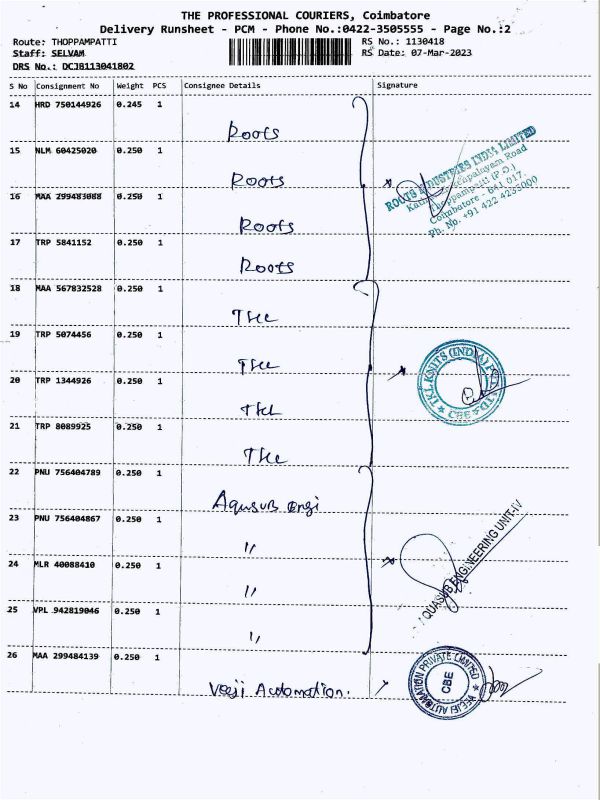 THE PROFESSIONAL COURIERS, Coimbatore
Delivery Runsheet - PCM - Phone No.:0422-3505555 - Page No.:2
Route: THOPPAMPATTI RS No.: 1130418
Staff: SELVAM RS Date: 07-Mar-2023
DRS No.: DCJB113041802
S No Consignment No Weight PCS Consignee Details Signature
14 HRD 750144926 0.245 1
Roots
15 NLM 60425020 0.250 1
Roots
ROOTS INDUSTRIES INDIA LIMITED
Thoppampatti (P.O.)
Coimbatore - 641 017.
Ph. No. +91 422 4235000
16 MAA 299483088 0.250 1
Roots
17 TRP 5841152 0.250 1
Roots
18 MAA 567832528 0.250 1
19 TRP 5074456 0.250 1
TKL KNITS (INDIA) PVT LTD
CBE
20 TRP 1344926 0.250 1
21 TRP 8089925 0.250 1
22 PNU 756404789 0.250 1
Aqusub Engi
23 PNU 756404867 0.250 1
"
QUASUB ENGINEERING UNIT-IV
24 MLR 40088410 0.250 1
"
25 VPL 942819046 0.250 1
"
26 MAA 299484139 0.250 1
Veeji Automation.
AUTOMATION PRIVATE LIMITED
CBE